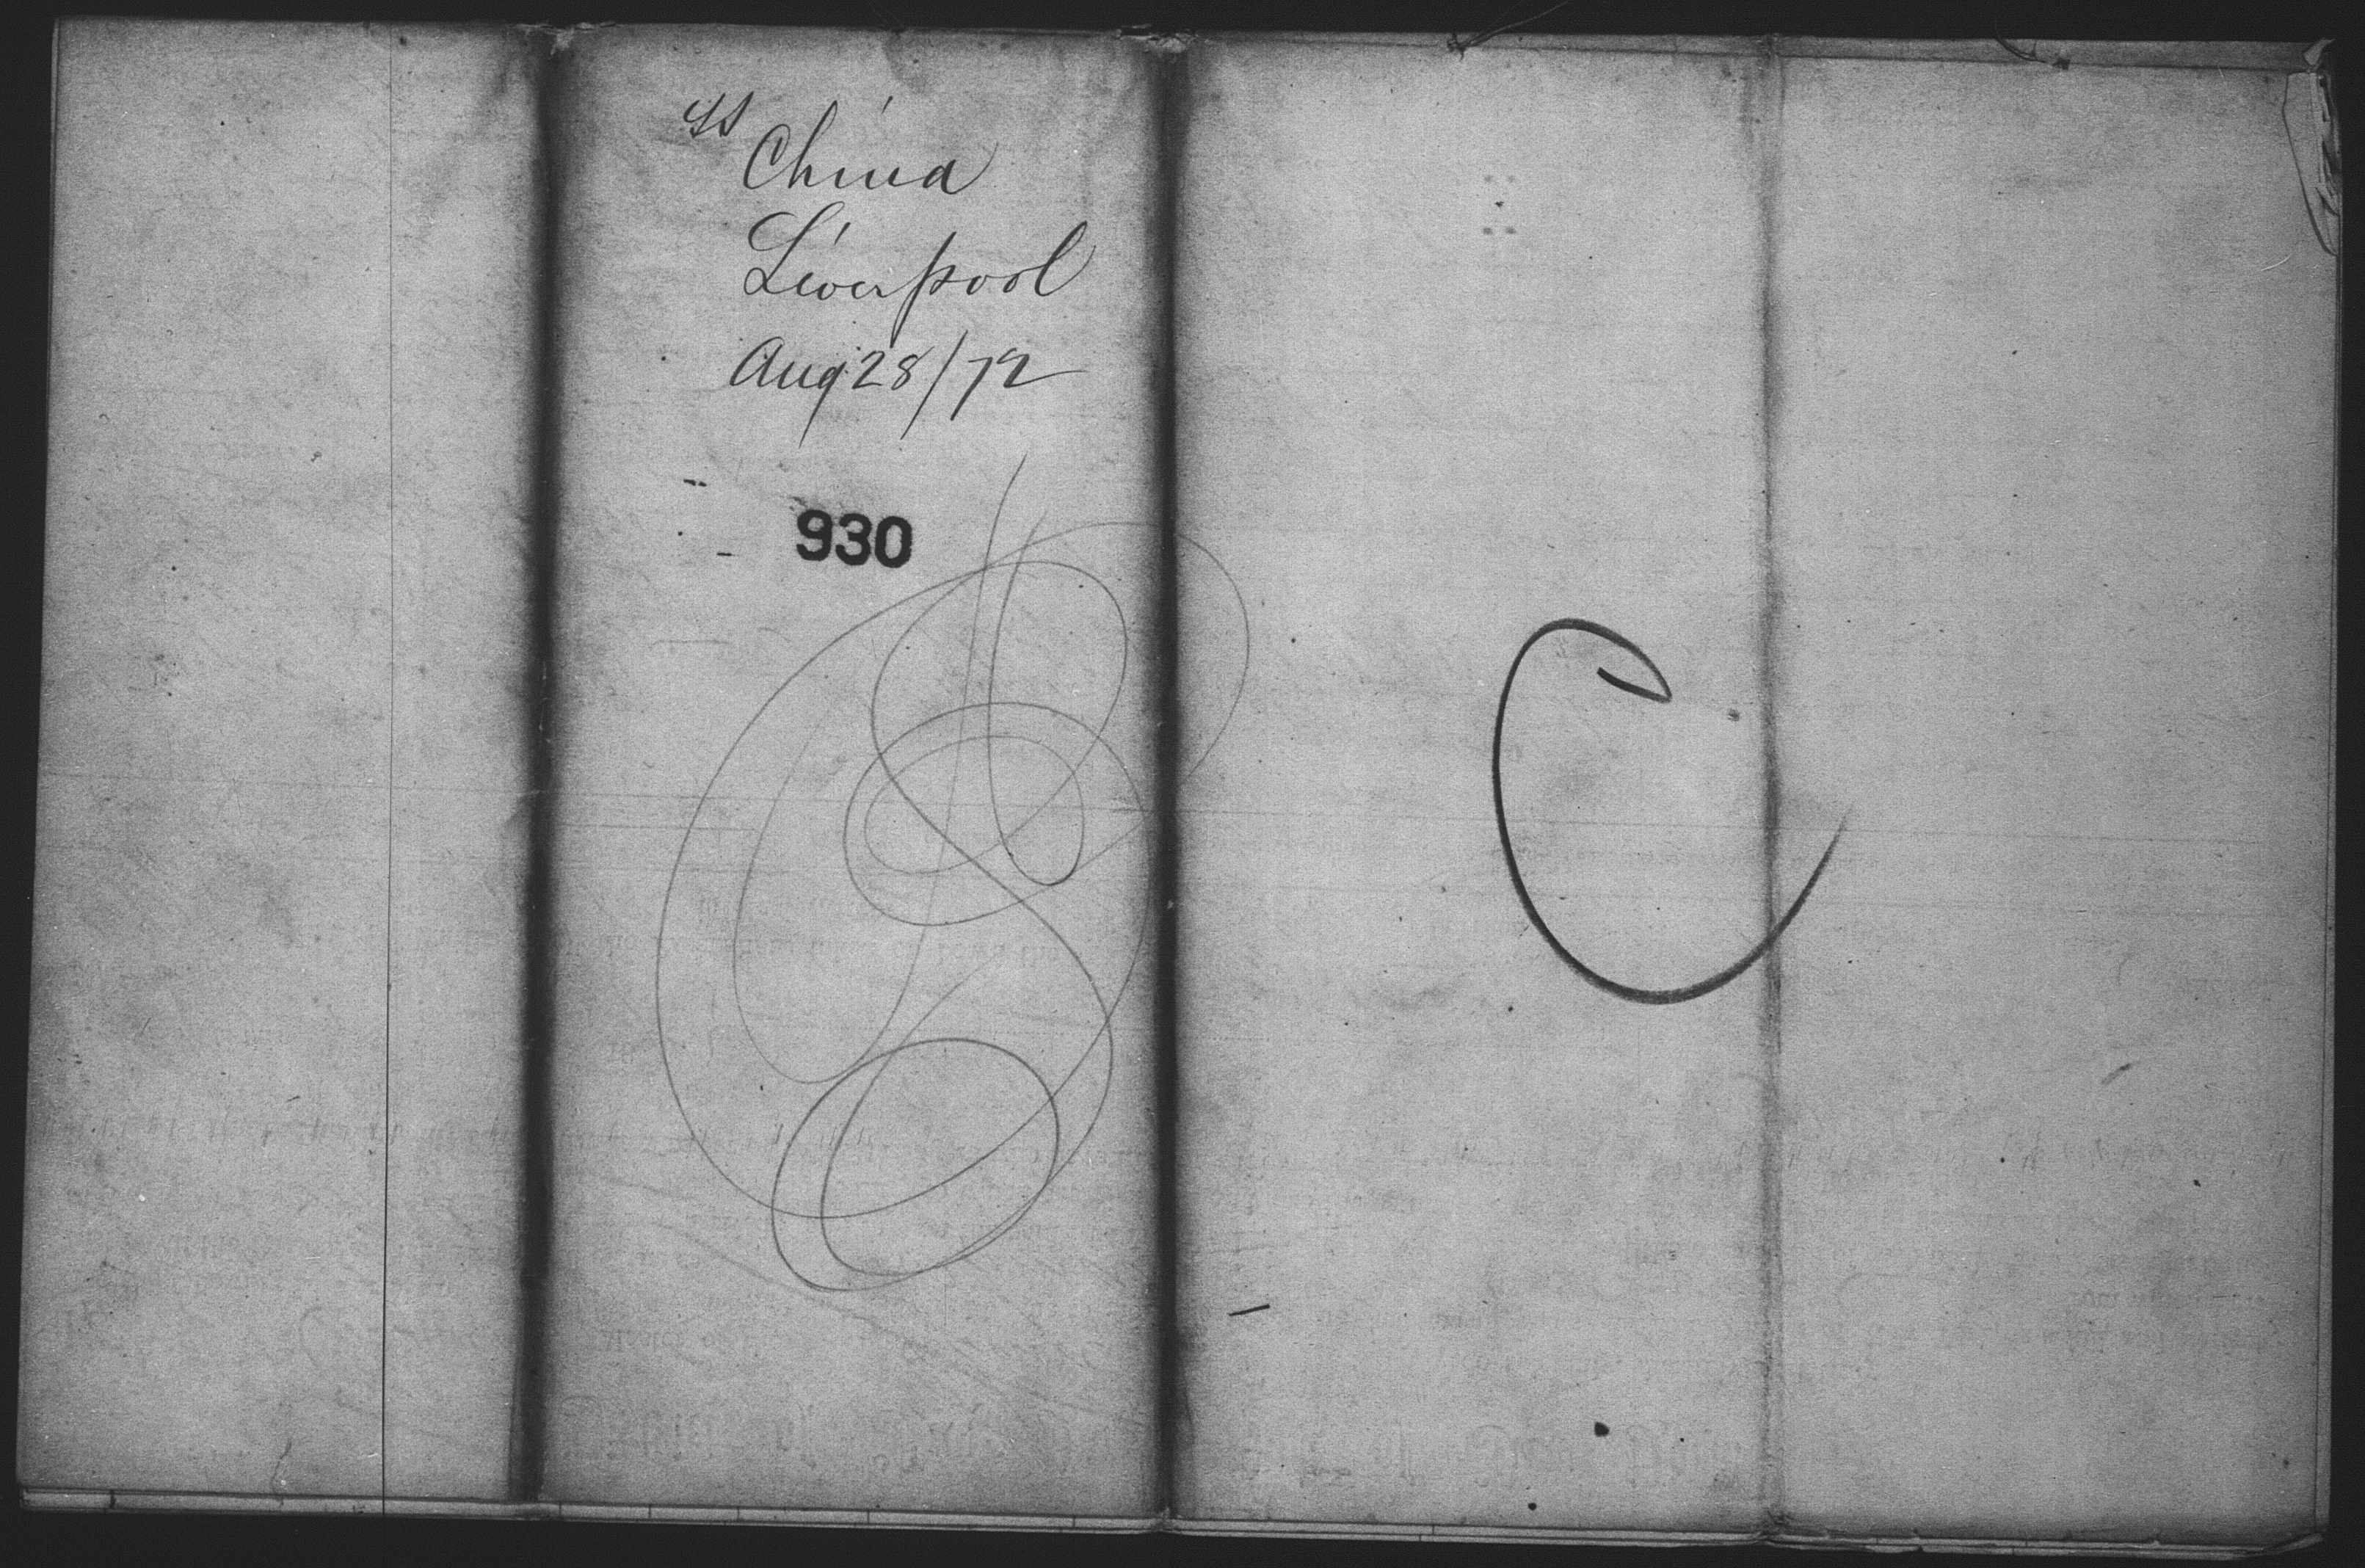 SS
China
Liverpool
Aug 28/72
930
C